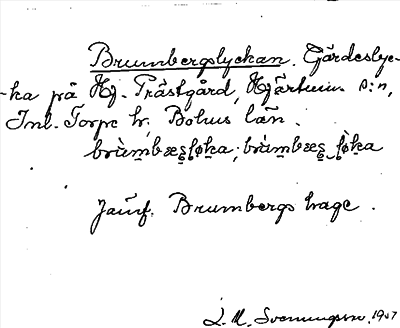 Brumbergslyckan. Gärdeslyc-
-ka på Hj. Prästgård, Hjärtum s:n,
Inl. Torpe hr, Bohus län.
Jämf. Brumbergs hage.
L. M. Svenungsson. 1907